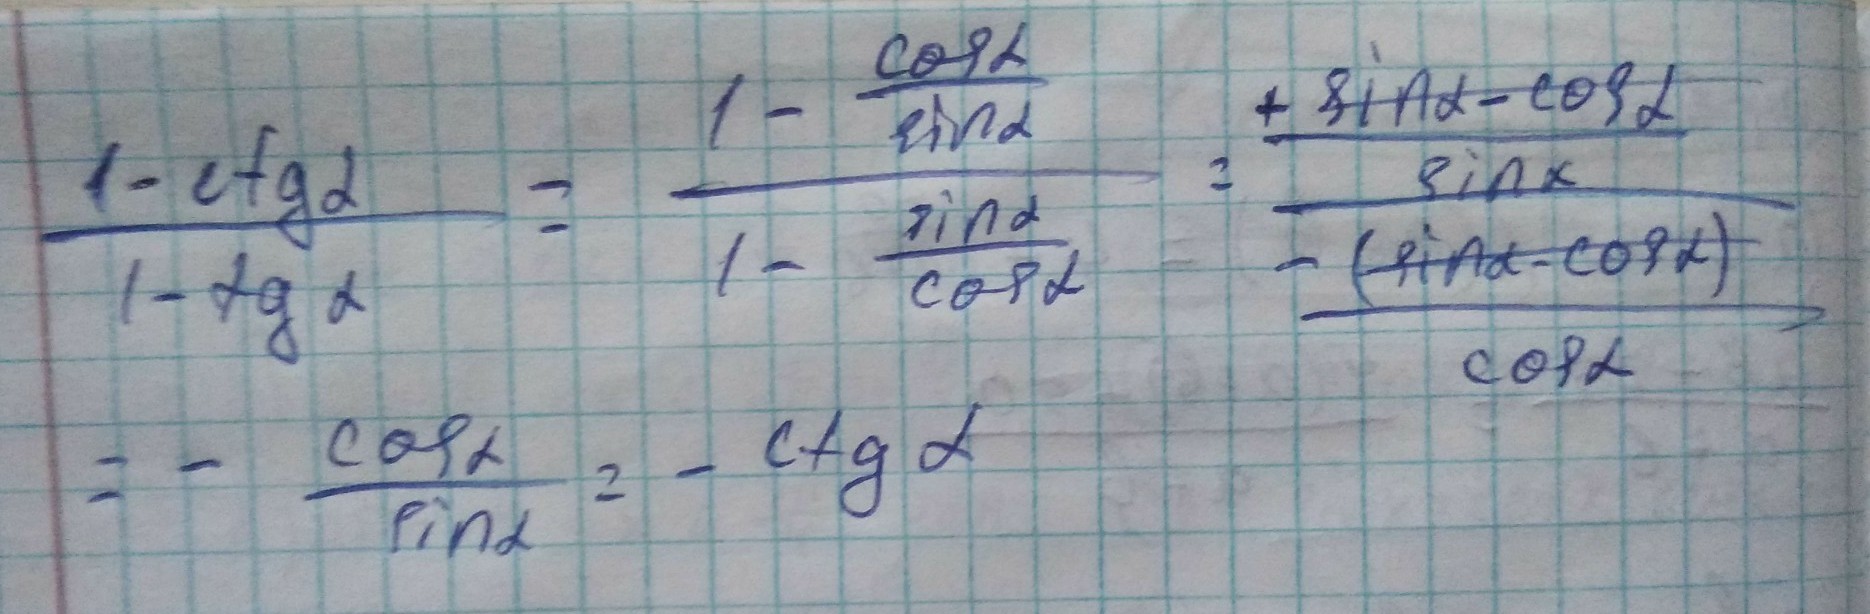 (1 - ctg α)/(1 - tg α) = (1 - cos α/sin α)/(1 - sin α/cos α) = (+ (sin α - cos α)/sin x)/(-(sin α - cos α)/cos α)
= - cos α/sin α = - ctg α